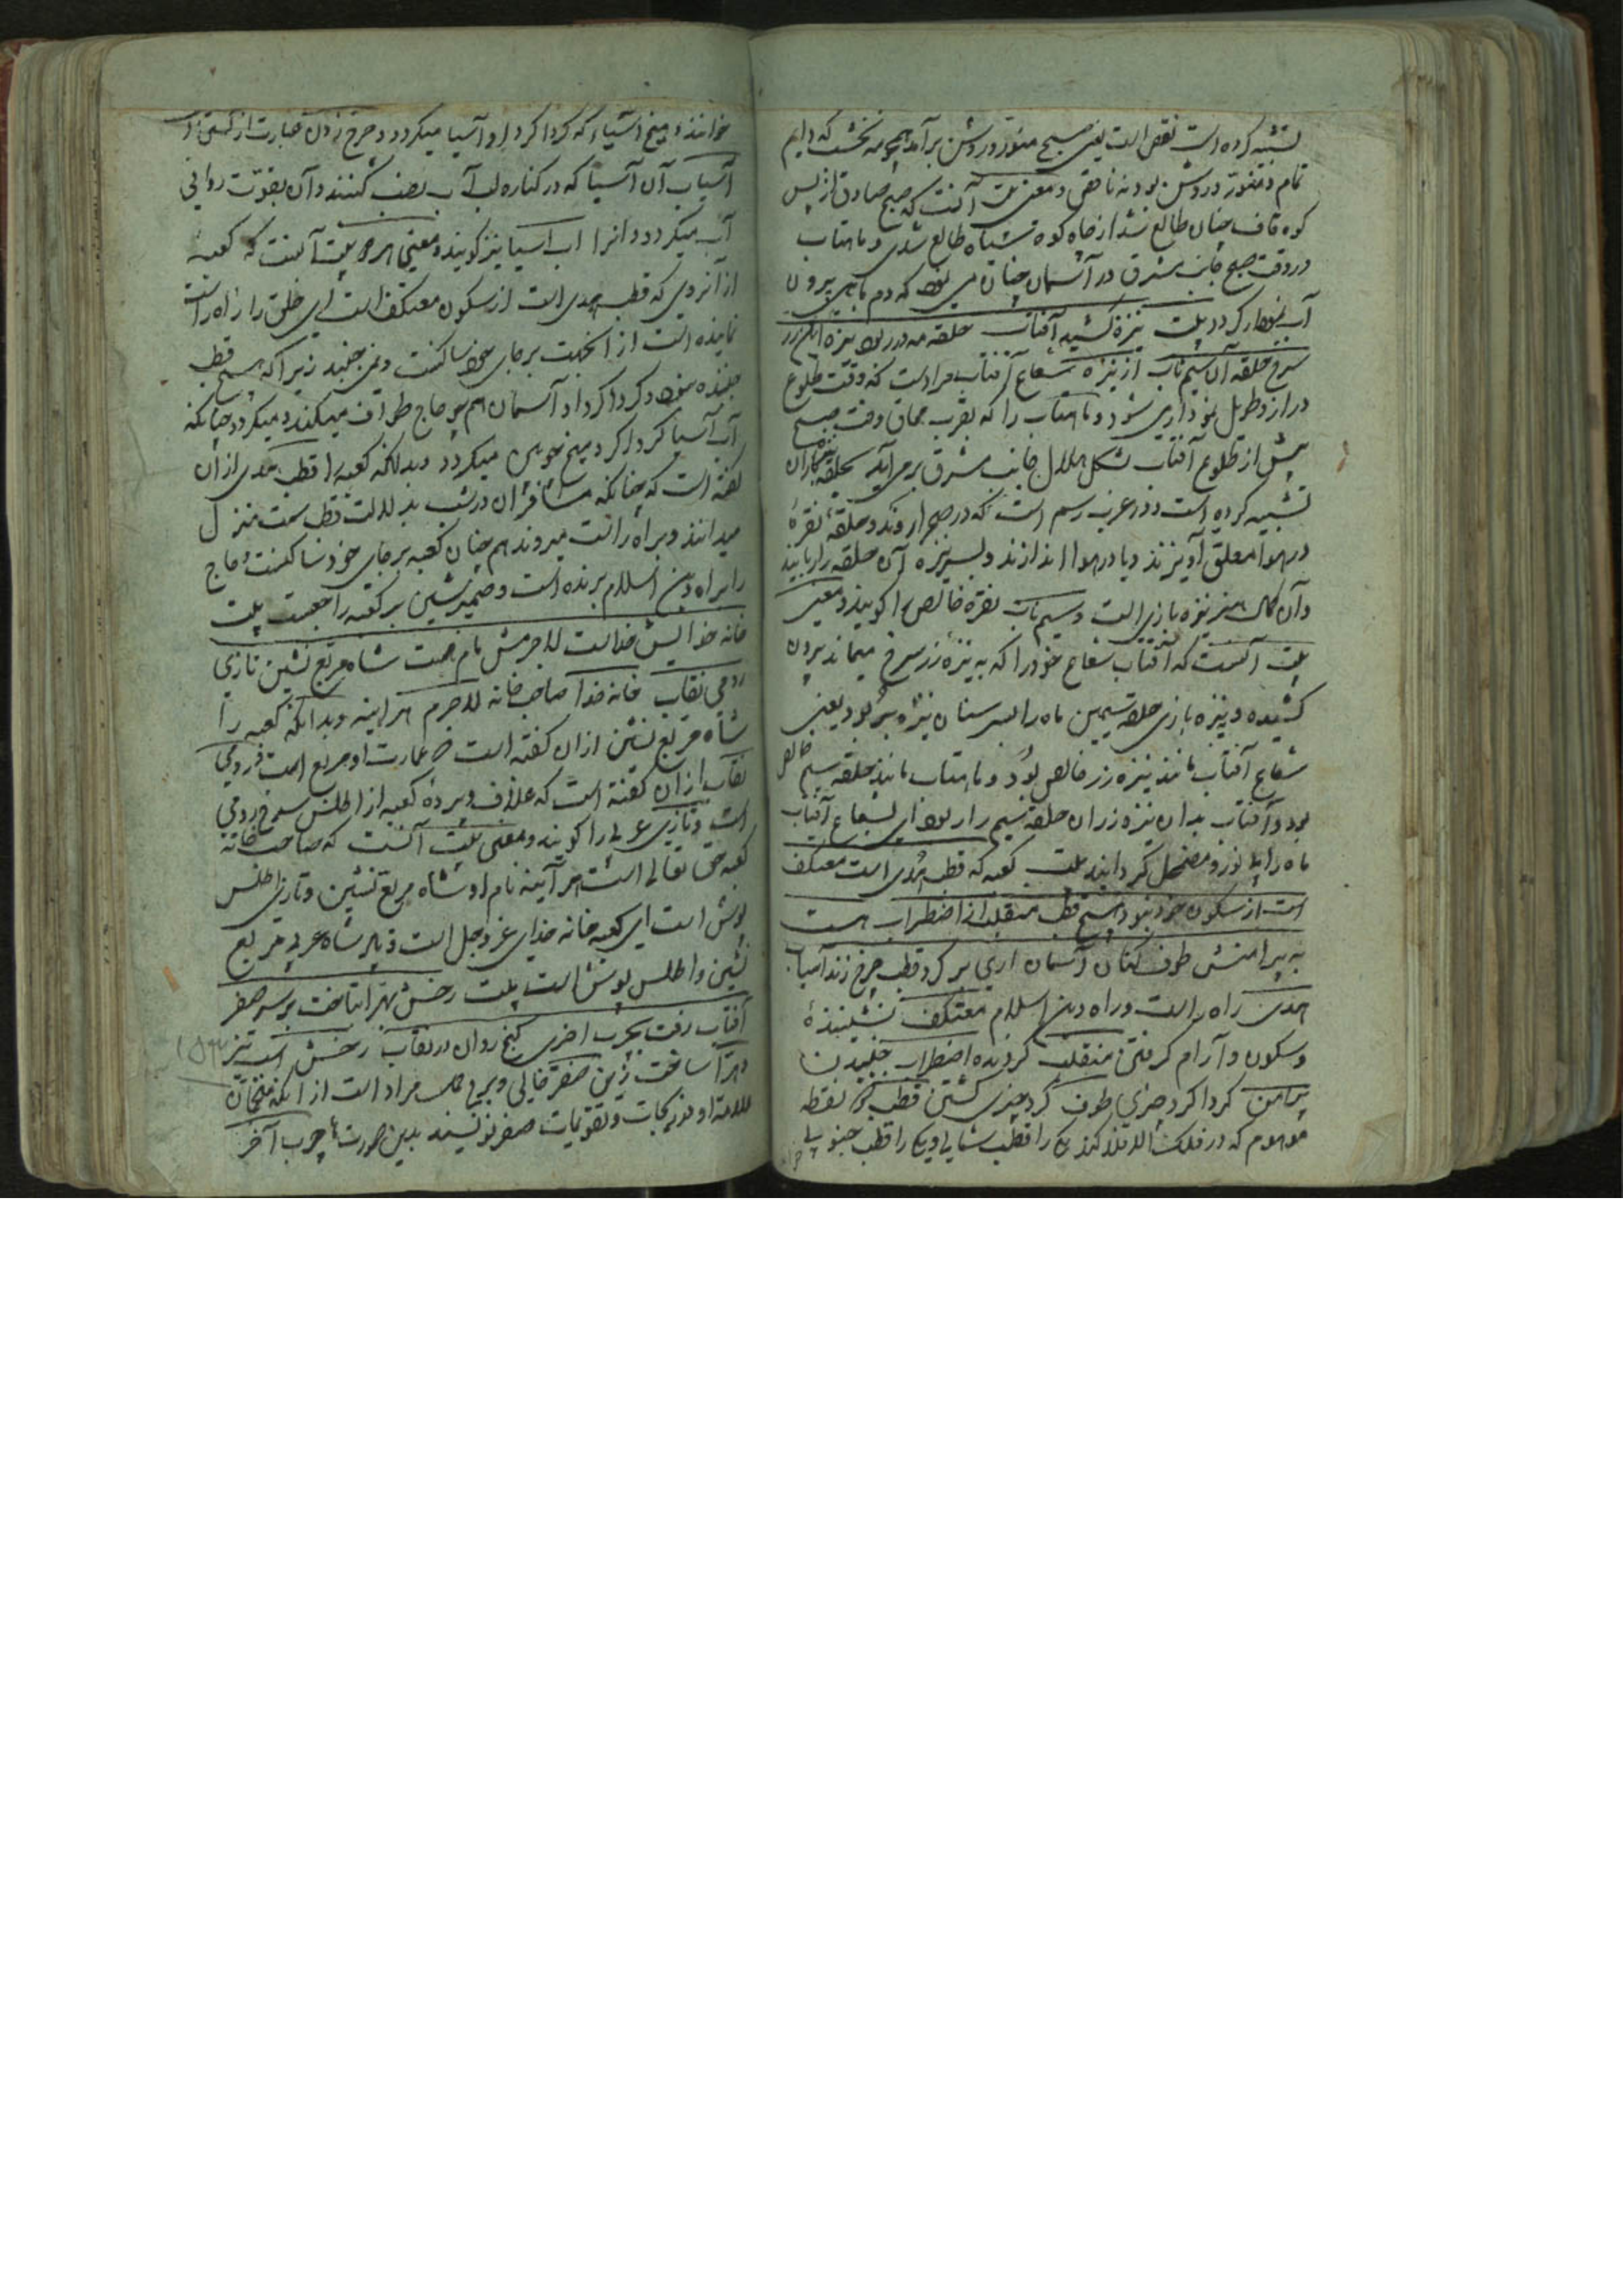 تشبیه کرده است نقص است یعنی صبح منور و روشن برآمد همچو مه نخشب که دایم
تمام و منور و روشن بود نه ناقص و معنی بیت آنست که صبح صادق از پس
کوه قاف چنان طالع شد از چاه کوه سیاه طالع شدی و ماهتاب
در وقت صبح جانب مشرق در آسمان چنان می نمود که دم ماهی بیرون
آب نمودار کردد بیت نیزه کشید آفتاب حلقه مه در ربود نیزه این زر
سرخ حلقه آن سیم ناب از نیزه شعاع آفتاب مراد است که وقت طلوع
دراز و طویل نموداری شود و ماهتاب را که بقرب محاق وقت صبح
پیش از طلوع آفتاب بشکل هلال جانب مشرق برمی آید بحلقه
تشبیه کرده است و در عرب رسم است که در صحرا روند و حلقه نقره
در هوا معلق آویزند و یا در هوا اندازند و بسر نیزه آن حلقه را ربایند
و آن کمال هنر نیزه بازی است و سیم ناب نقره خالص را کویند و معنی
بیت آنست که آفتاب شعاع خود را که به نیزه زر سرخ میماند بیرون
کشیده و به نیزه بازی حلقه سیمین ماه را بسر سنان نیزه بربود یعنی
شعاع آفتاب مانند نیزه زر خالص بود و ماهتاب مانند حلقه سیم خالص
بود و آفتاب بدان نیزه زر آن حلقه سیم را ربود ای بشعاع آفتاب
ماه را بی نور و مضمحل کردانید بیت کعبه که قطب هدی است معتکف
است از سکون خود نبود هیچ قطب منقلب از اضطراب هست
به پیرامنش طوف کنان آسمان آری بر کرد قطب چرخ زند آسیاب
هدی راه راست و راه دین اسلام معتکف نشیننده
و سکون و آرام کرفتن منقلب کردنده اضطراب جنبیدن
پیرامن کردا کرد چیزی طوف کرد چیزی کشتن قطب نقطه
موهوم که در فلک الافلاک اند یکی را قطب شمالی و یکی را قطب جنوبی
خوانند و میخ آسیا که کردا کرد او آسیا میکردد و چرخ زدن عبارت از کشتن
آسیاب آن آسیا که در کناره لب آب نصب کنند و آن بقوت روانی
آب میکردد و آنرا آب آسیا نیز کویند و معنی هر دو بیت آنست که کعبه
از آنروی که قطب هدی است از سکون معتکف است ای خلق را راه راست
نماینده است از انجهت بر جای خود ساکنست و نمی جنبد زیرا که هیچ قطب
جنبنده نبود و کردا کرد او آسمان هم چو حاج طواف میکند و میکردد چنانکه
آب آسیا کردا کرد میخ خویش میکردد و بدانکه کعبه را قطب هدی از آن
کفته است که چنانکه مسافران در شب بدلالت قطب سمت منزل
میدانند و براه راست میروند هم چنان کعبه بر جای خود ساکنست و حاج
را براه دین اسلام برنده است و ضمیر شین بر کعبه راجعست بیت
خانه خدایش خداست لاجرمش نام هست شاه مربع نشین تازی
رومی نقاب خانه خدا صاحب خانه لاجرم هر آینه و بدانکه کعبه را
شاه مربع نشین از آن کفته است که عمارت او مربع است و رومی
نقاب از آن کفته است که غلاف و پرده کعبه از اطلس سرخ رومی
است و تازی عربی را کویند و معنی بیت آنست که صاحب خانه
کعبه حق تعالی است هر آینه نام او شاه مربع نشین و تازی اطلس
پوش است ای کعبه خانه خدای عز و جل است شاه عربی مربع
نشین و اطلس پوش است بیت رخش بهرا بتاخت بر سر صفر
آفتاب رفت بچرب آخری کنج روان در نقاب رخش اسب تیز
بهرا ساخت زین صفر خالی و برج حمل مراد است از آنکه منجمان
علامت او در زیجات و تقویمات صفر نویسند بدین صورت چرب آخر